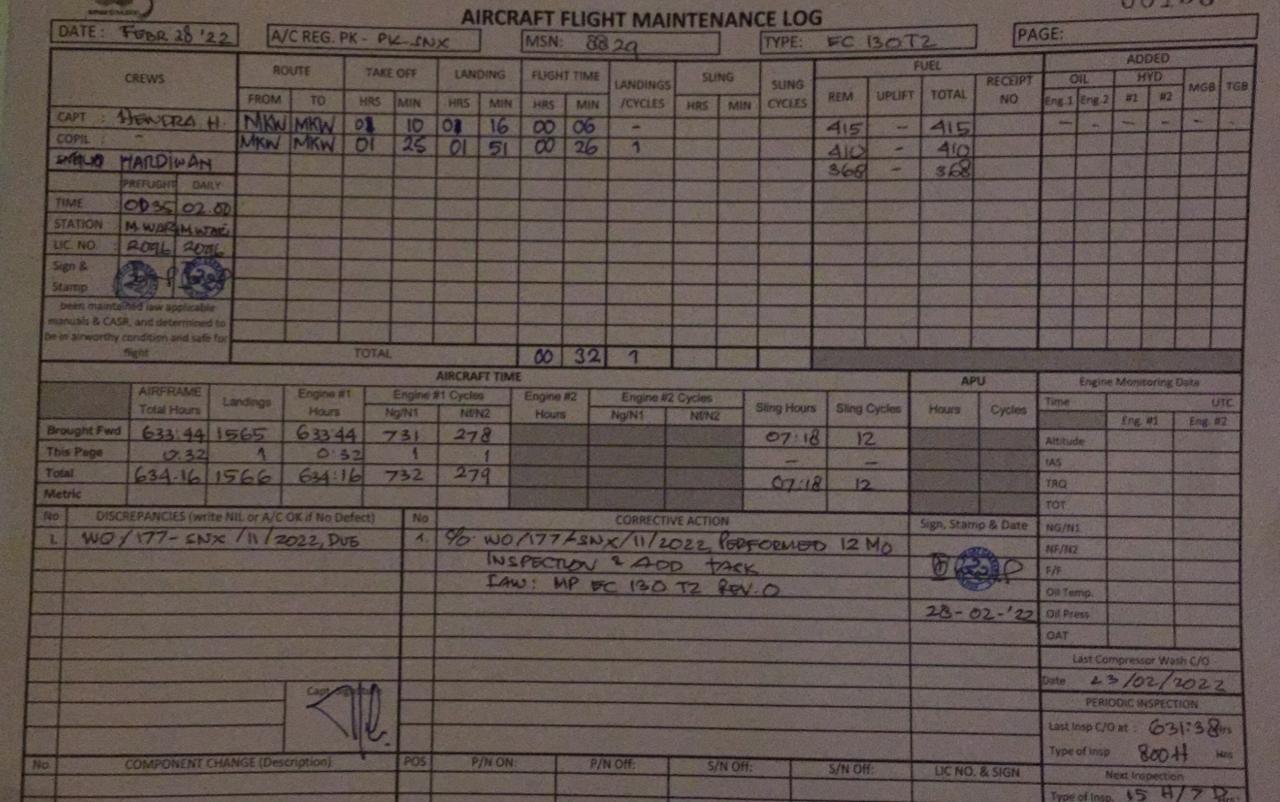 AIRCRAFT FLIGHT MAINTENANCE LOG
DATE : FEBR 28 '22 A/C REG. PK - PK-SNX MSN: 8829 TYPE: EC 130T2 PAGE:
CREWS ROUTE TAKE OFF LANDING FLIGHT TIME LANDINGS /CYCLES SLING SLING CYCLES FUEL ADDED
FROM TO HRS MIN HRS MIN HRS MIN HRS MIN REM UPLIFT TOTAL RECEIPT NO OIL HYD MGB TGB
Eng.1 Eng.2 #1 #2
CAPT : HENDRA H. MKW MKW 01 10 01 16 00 06 - 415 - 415 - - - - - -
COPIL : - MKW MKW 01 25 01 51 00 26 1 410 - 410
HARDIWAN 368 - 368
PREFLIGHT DAILY
TIME : 0035 02.00
STATION : M.WARI
LIC. NO. : 2096 2096
Sign &
Stamp
been maintained iaw applicable
manuals & CASR, and determined to
be in airworthy condition and safe for
flight
TOTAL 00 32 1
AIRCRAFT TIME APU Engine Monitoring Data
AIRFRAME Total Hours Landings Engine #1 Hours Engine #1 Cycles Engine #2 Hours Engine #2 Cycles Sling Hours Sling Cycles Hours Cycles Time UTC
Ng/N1 Nf/N2 Ng/N1 Nf/N2 Eng. #1 Eng. #2
Brought Fwd 633:44 1565 633:44 731 278 07:18 12 Altitude
This Page 0:32 1 0:32 1 1 - - IAS
Total 634:16 1566 634:16 732 279 07:18 12 TRQ
Metric TOT
No DISCREPANCIES (write NIL or A/C OK if No Defect) No CORRECTIVE ACTION Sign, Stamp & Date NG/N1
1. WO/177-SNX/11/2022, DUE 1. C/O. WO/177-SNX/11/2022, PERFORMED 12 MO NF/N2
INSPECTION & ADD TASK F/F
IAW: MP EC 130 T2 REV.0 Oil Temp.
28-02-'22 Oil Press
OAT
Last Compressor Wash C/O
Date 23/02/2022
PERIODIC INSPECTION
Last Insp C/O at : 631:38 Hrs
Type of Insp 800 H Hrs
No. COMPONENT CHANGE (Description) POS P/N ON: P/N Off: S/N Off: S/N Off: LIC NO. & SIGN Next Inspection
Type of Insp. 15 H/7 D